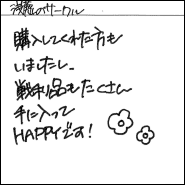 のサークル
購入してくれた方も
いましたし、
戦利品もたくさん
手に入って
HAPPYです!